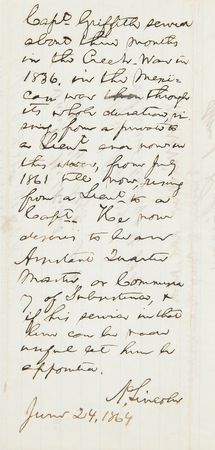 Capt. Griffith served
about three months
in the Creek War in
1836, in the Mexi-
can war through
its whole duration, ri-
sing from a private to
a Lieut. and now in
this war, from July
1861 till now, rising
from a Lieut. to a
Capt. He now
desires to be an
Assistant Quarter
Master, or Commissa-
ry of Subsistence, &
if his service in that
line can be made
useful let him be
appointed.
A. Lincoln
June 24, 1864